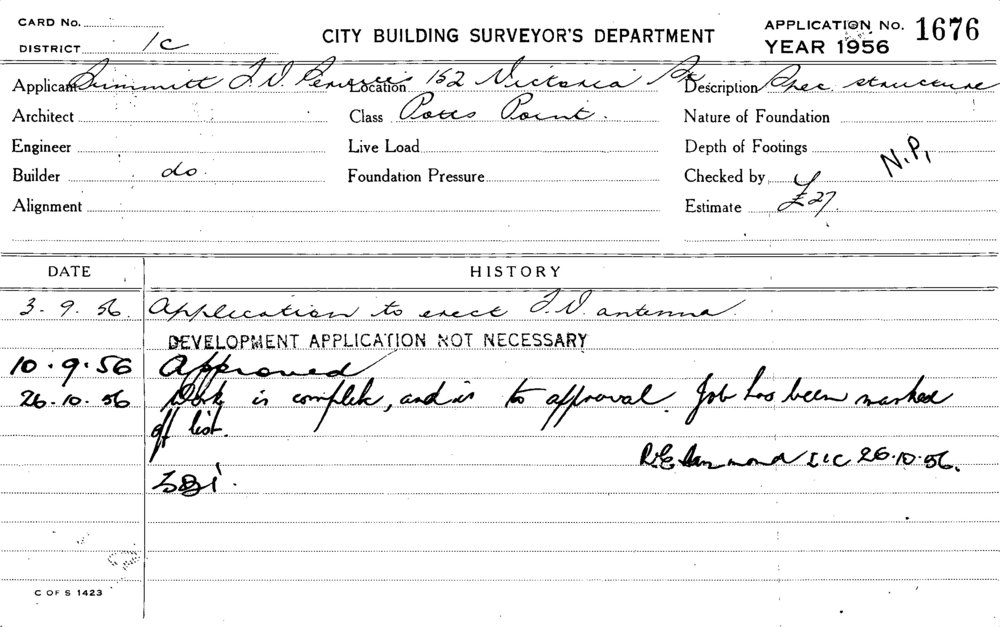 CARD No.
DISTRICT 1c
CITY BUILDING SURVEYOR'S DEPARTMENT
APPLICATION No. 1676
YEAR 1956
Applicant Summitt T.V. Location 152 Victoria St Description Spec structure
Architect Class Potts Point. Nature of Foundation
Engineer Live Load Depth of Footings N.P.
Builder do. Foundation Pressure Checked by
Alignment Estimate £27.
DATE HISTORY
3.9.56. Application to erect T.V. antenna.
DEVELOPMENT APPLICATION NOT NECESSARY
10.9.56 Approved
26.10.56 Work is complete, and is to approval. Job has been marked
off list.
26.10.56.
C OF S 1423